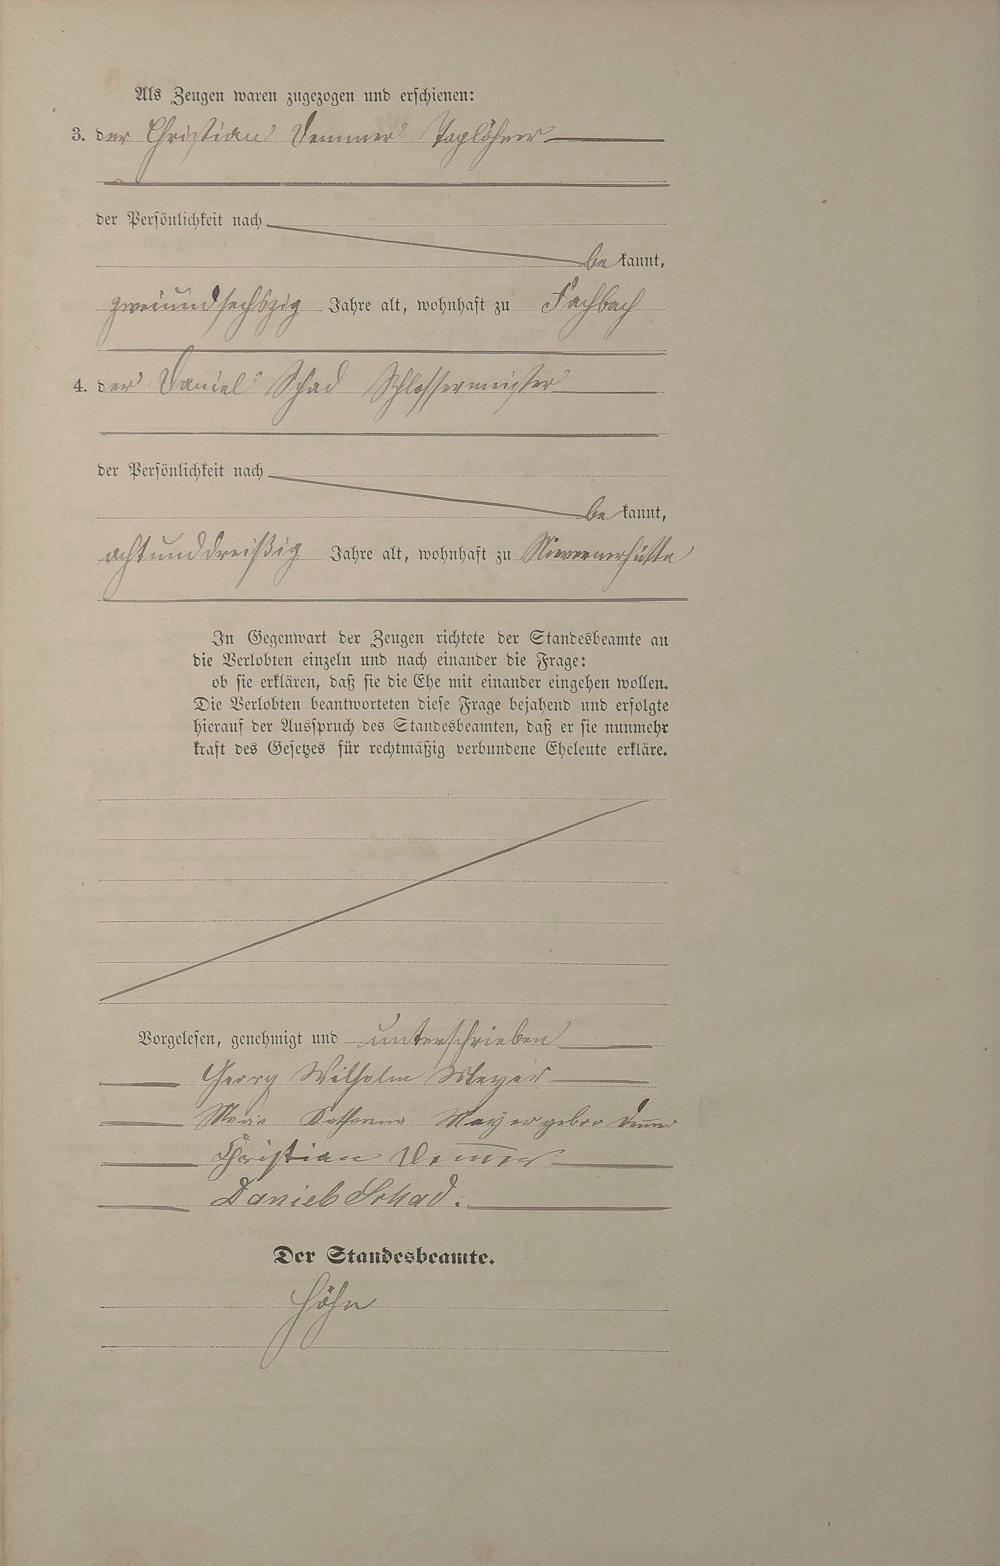 Als Zeugen waren zugezogen und erschienen:
3. der Christian Demmer Taglöhner
der Persönlichkeit nach
be kannt,
zweiundsechszig Jahre alt, wohnhaft zu Fachbach
4. der Daniel Schad Schlossermeister
der Persönlichkeit nach
be kannt,
achtunddreißig Jahre alt, wohnhaft zu Nievernerhütte
In Gegenwart der Zeugen richtete der Standesbeamte an
die Verlobten einzeln und nach einander die Frage:
ob sie erklären, daß sie die Ehe mit einander eingehen wollen.
Die Verlobten beantworteten diese Frage bejahend und erfolgte
hierauf der Ausspruch des Standesbeamten, daß er sie nunmehr
kraft des Gesetzes für rechtmäßig verbundene Eheleute erkläre.
Vorgelesen, genehmigt und unterschrieben
Georg Wilhelm Meyer
Maria Katharina Mayer
Christian Demmer
Daniel Schad.
Der Standesbeamte.
Höhn